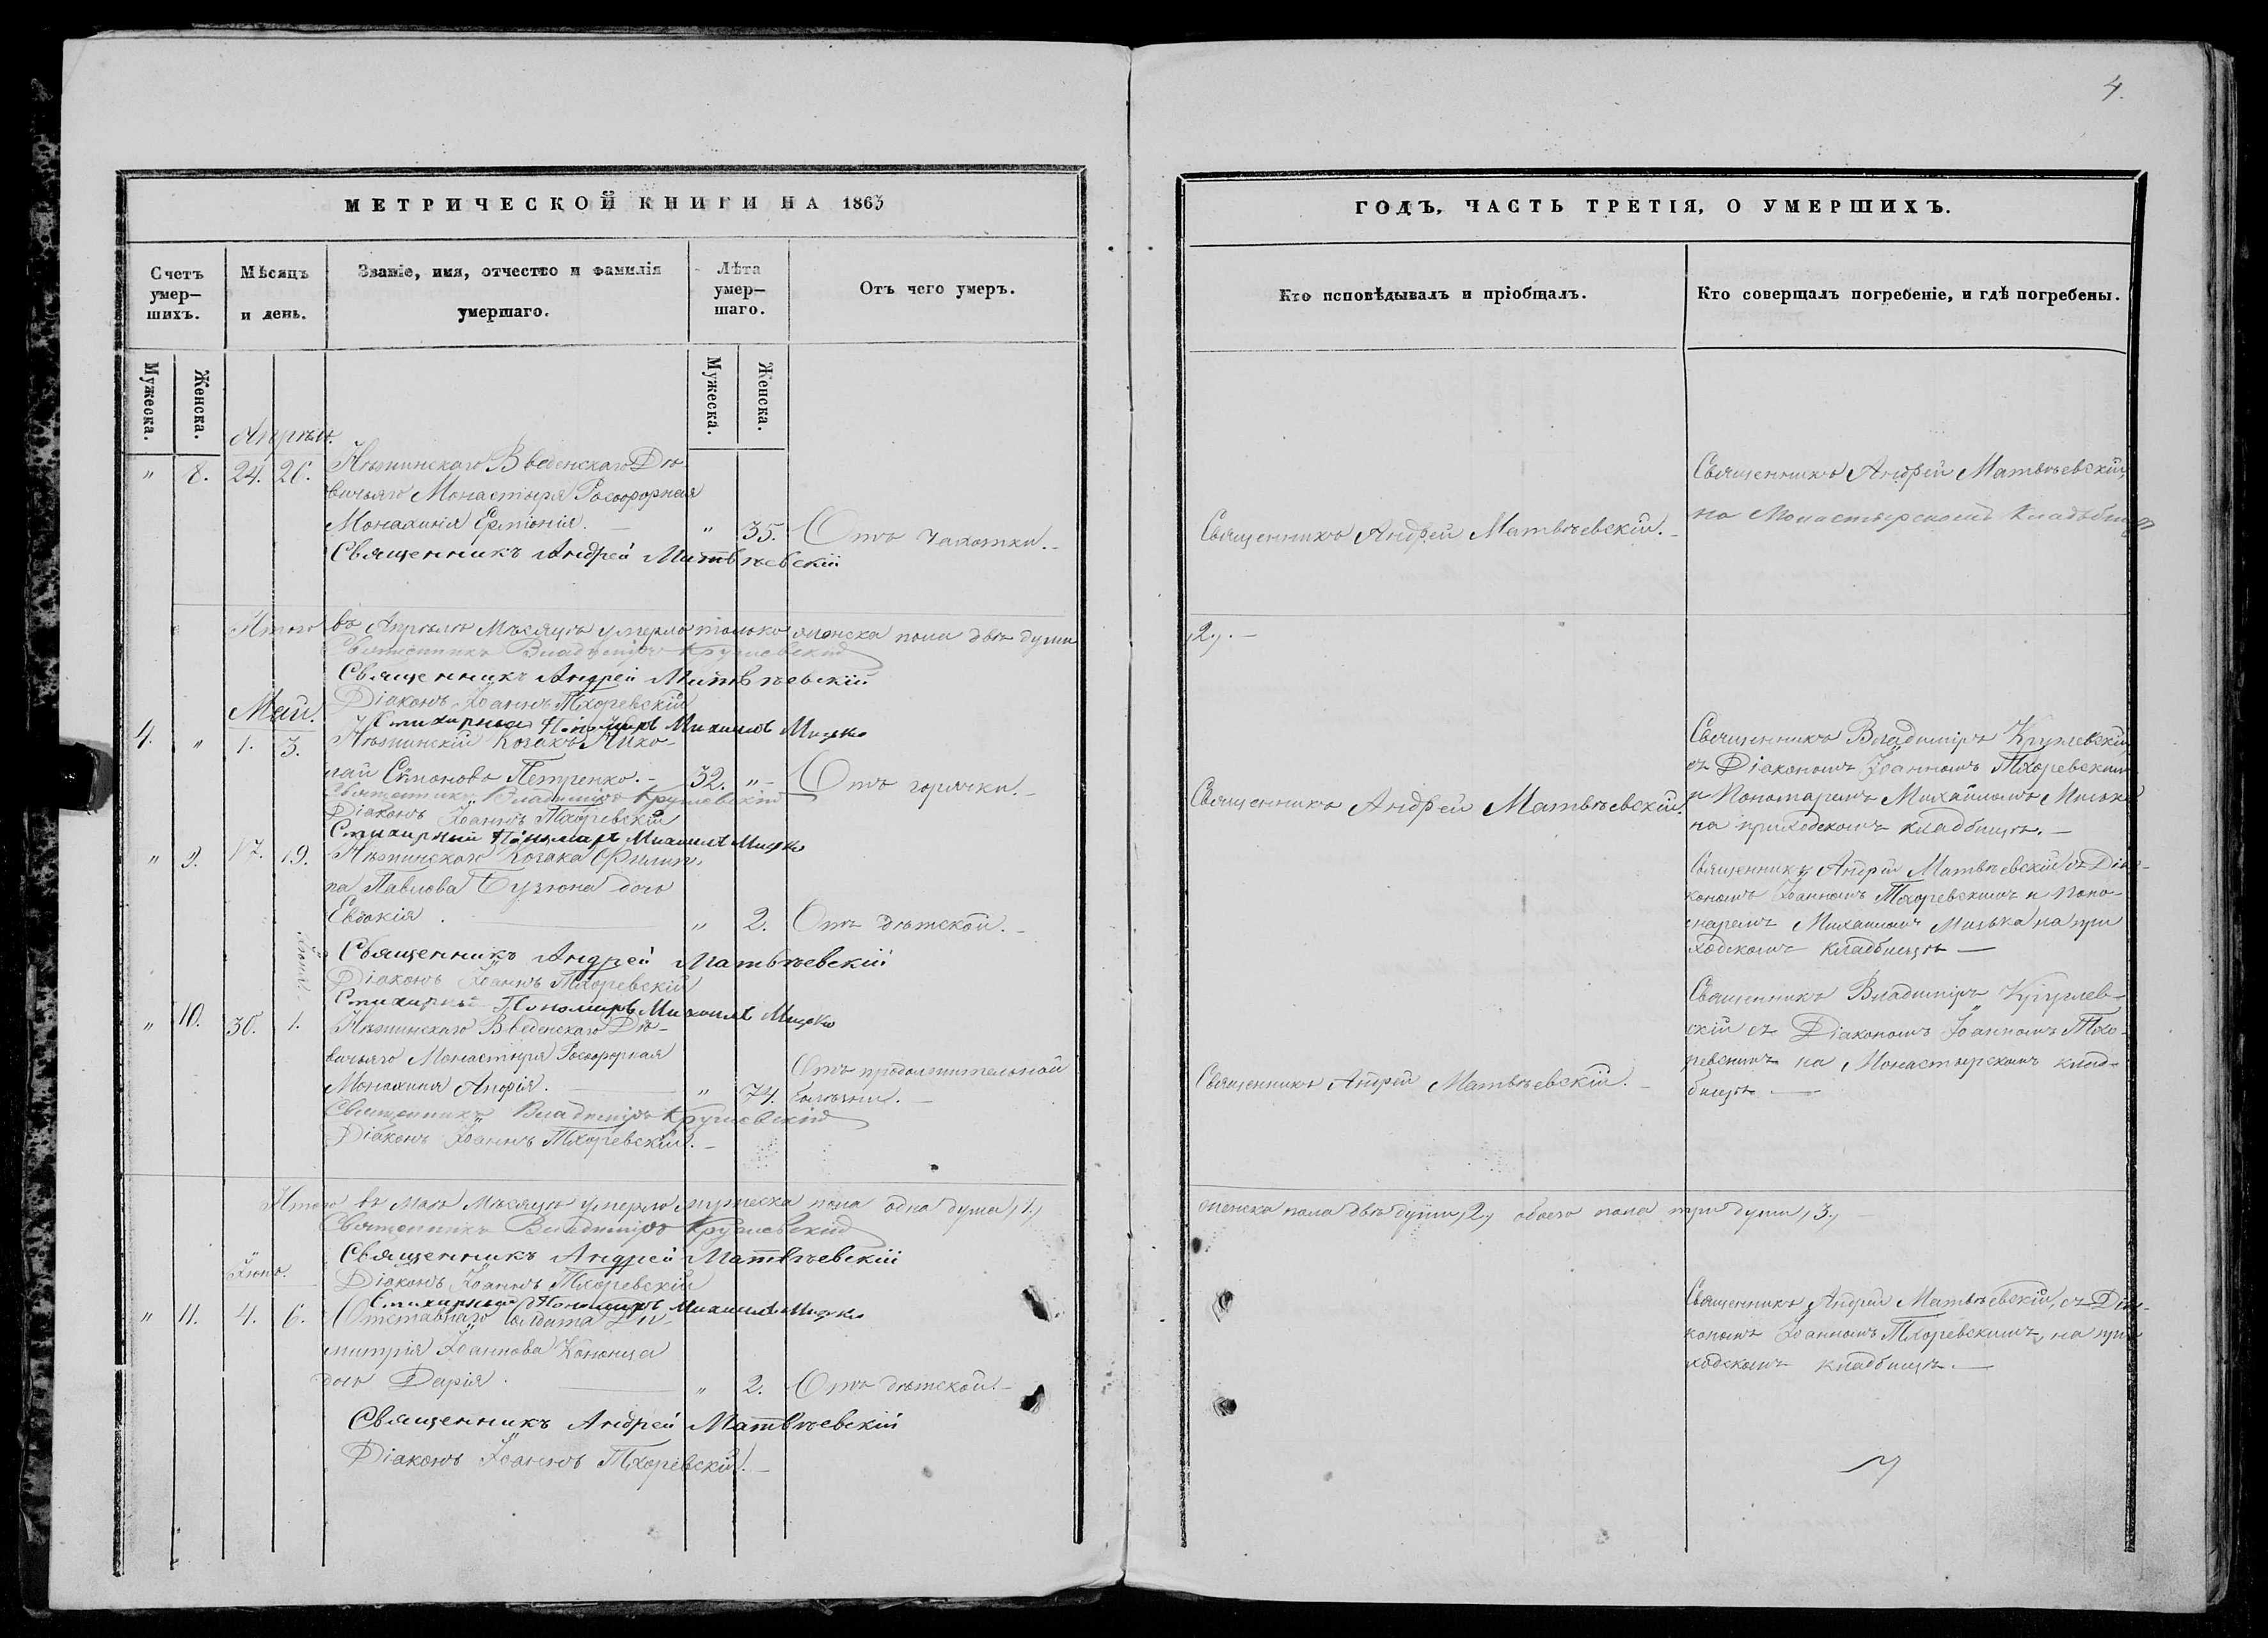 4.
МЕТРИЧЕСКОЙ КНИГИ НА 1863
Счетъ умер-
шихъ.
Мѣсяцъ
и день.
Званіе, имя, отчество и фамилія
умершаго.
Лѣта
умер-
шаго.
Отъ чего умеръ.
Мужеска.
Женска.
Мужеска.
Женска.
" 8. 24. 26. Нѣжинскаго Введенскаго Дѣ-
вичьяго Монастыря Рясофорная
Монахиня " 35. Отъ чахотки.
Священникъ Андрей Матвѣевскій
Итого въ Апрѣлѣ Мѣсяцѣ умерло только женска пола двѣ души
Священникъ Владиміръ Круглевскій
Священникъ Андрей Матвѣевскій
Діаконъ Іоаннъ Тхоревскій
Май.
Стихарный Пономарь Михаилъ
4. " 1. 3. Нѣжинскій Козакъ Нико-
лай Петренко. 32. " Отъ горячки.
Священникъ Владиміръ Круглевскій
Діаконъ Іоаннъ Тхоревскій
Стихарный Пономарь Михаилъ
" 9. 17. 19. Нѣжинскаго Козака Филип-
па Павлова дочь
Евдокія. " 2. Отъ дѣтской.
Священникъ Андрей Матвѣевскій
Діаконъ Іоаннъ Тхоревскій
Стихарный Пономарь Михаилъ
" 10. 30. 1. Нѣжинскаго Введенскаго Дѣ-
вичьяго Монастыря Рясофорная
Монахиня " 74. Отъ продолжительной
болѣзни.
Священникъ Владиміръ Круглевскій
Діаконъ Іоаннъ Тхоревскій.
Итого въ Маѣ Мѣсяцѣ умерло мужеска пола одна душа, 1,
Священникъ Владиміръ Круглевскій
Священникъ Андрей Матвѣевскій
Іюнь.
Діаконъ Іоаннъ Тхоревскій
Стихарный Пономарь Михаилъ
" 11. 4. 6. Отставнаго Солдата Ди-
митрія Іоаннова
дочь Дарія. " 2. Отъ дѣтской.
Священникъ Андрей Матвѣевскій
Діаконъ Іоаннъ Тхоревскій.
ГОДЪ, ЧАСТЬ ТРЕТІЯ, О УМЕРШИХЪ.
Кто исповѣдывалъ и пріобщалъ.
Кто совершалъ погребеніе, и гдѣ погребены.
Священникъ Андрей Матвѣевскій.
Священникъ Андрей Матвѣевскій,
на Монастырскомъ Кладбищѣ
,2,.
Священникъ Андрей Матвѣевскій.
Священникъ Владиміръ Круглевскій
съ Діакономъ Іоанномъ Тхоревскимъ
и Пономаремъ Михаиломъ
на приходскомъ кладбищѣ.
Священникъ Андрей Матвѣевскій съ Діа-
кономъ Іоанномъ Тхоревскимъ и Поно-
маремъ Михаиломъ на при
ходскомъ кладбищѣ
Священникъ Андрей Матвѣевскій.
Священникъ Владиміръ Круглев-
скій съ Діакономъ Іоанномъ Тхо-
ревскимъ на Монастырскомъ клад-
бищѣ
женска пола двѣ души, 2, обоего пола три души, 3,
Священникъ Андрей Матвѣевскій, съ Діа-
кономъ Іоанномъ Тхоревскимъ, на при
ходскомъ кладбищѣ.